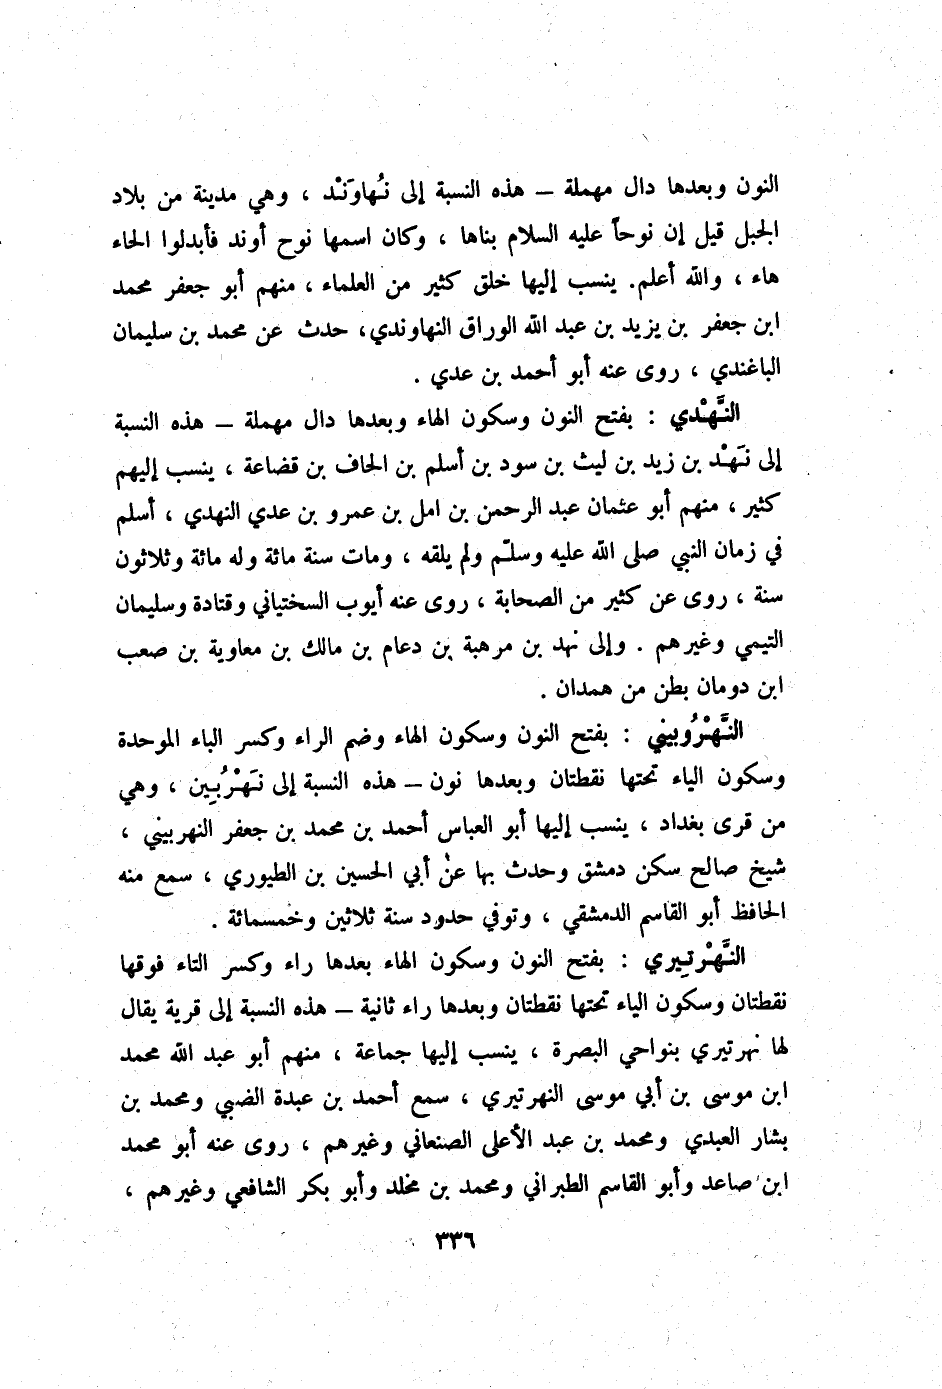 النون وبعدها دال مهملة ــ هذه النسبة إلى نُهاوَنْد ، وهي مدينة من بلاد
الجبل قيل إن نوحاً عليه السلام بناها ، وكان اسمها نوح أوند فأبدلوا الحاء
هاء ، والله أعلم. ينسب إليها خلق كثير من العلماء ، منهم أبو جعفر محمد
ابن جعفر بن يزيد بن عبد الله الوراق النهاوندي، حدث عن محمد بن سليمان
الباغندي ، روى عنه أبو أحمد بن عدي .
النَّهْدي : بفتح النون وسكون الهاء وبعدها دال مهملة ــ هذه النسبة
إلى نَهْد بن زيد بن ليث بن سود بن أسلم بن الحاف بن قضاعة ، ينسب إليهم
كثير ، منهم أبو عثمان عبد الرحمن بن امل بن عمرو بن عدي النهدي ، أسلم
في زمان النبي صلى الله عليه وسلّم ولم يلقه ، ومات سنة مائة وله مائة وثلاثون
سنة ، روى عن كثير من الصحابة ، روى عنه أيوب السختياني وقتادة وسليمان
التيمي وغيرهم . وإلى نهد بن مرهبة بن دعام بن مالك بن معاوية بن صعب
ابن دومان بطن من همدان .
النَّهْرُوبيني : بفتح النون وسكون الهاء وضم الراء وكسر الباء الموحدة
وسكون الياء تحتها نقطتان وبعدها نون ــ هذه النسبة إلى نَهْرُبِين ، وهي
من قرى بغداد ، ينسب إليها أبو العباس أحمد بن محمد بن جعفر النهربيني ،
شيخ صالح سكن دمشق وحدث بها عن أبي الحسين بن الطيوري ، سمع منه
الحافظ أبو القاسم الدمشقي ، وتوفي حدود سنة ثلاثين وخمسمائة .
النَّهْرتيري : بفتح النون وسكون الهاء بعدها راء وكسر التاء فوقها
نقطتان وسكون الياء تحتها نقطتان وبعدها راء ثانية ــ هذه النسبة إلى قرية يقال
لها نهرتيري بنواحي البصرة ، ينسب إليها جماعة ، منهم أبو عبد الله محمد
ابن موسى بن أبي موسى النهرتيري ، سمع أحمد بن عبدة الضبي ومحمد بن
بشار العبدي ومحمد بن عبد الأعلى الصنعاني وغيرهم ، روى عنه أبو محمد
ابن صاعد وأبو القاسم الطبراني ومحمد بن مخلد وأبو بكر الشافعي وغيرهم ،
٣٣٦